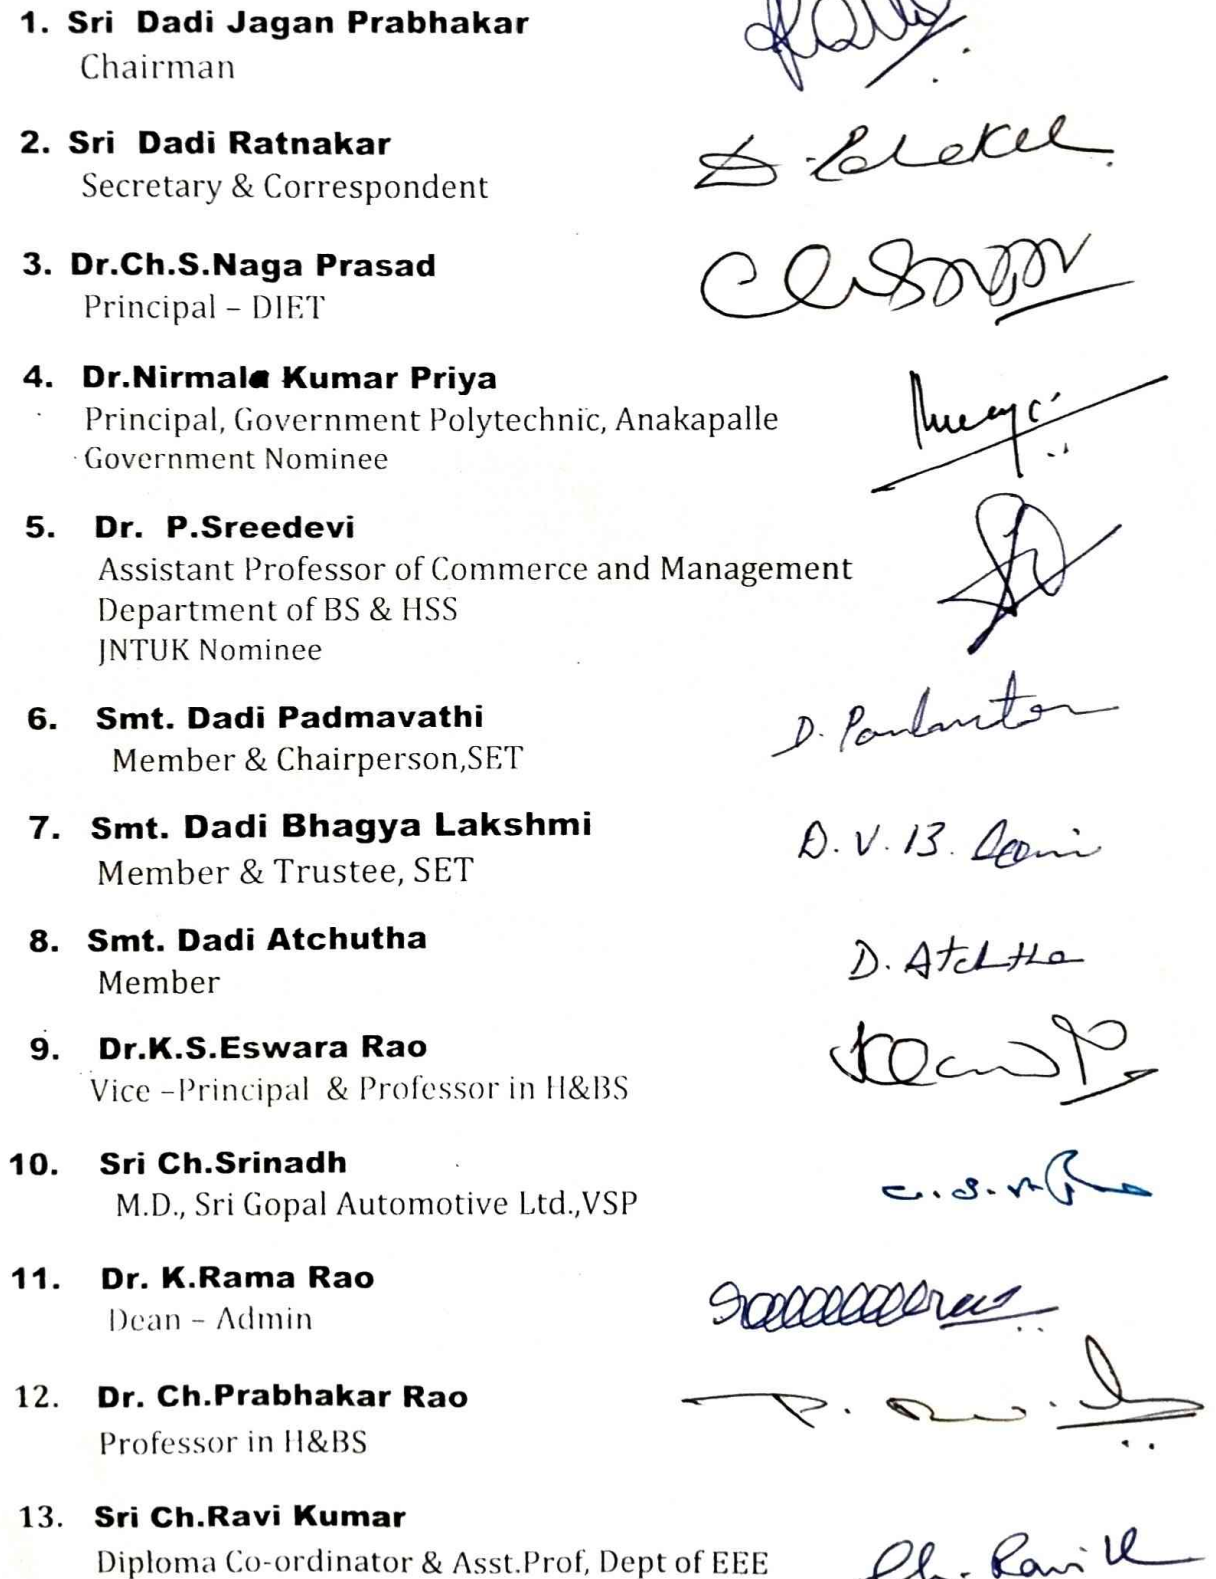 1. Sri Dadi Jagan Prabhakar
Chairman
2. Sri Dadi Ratnakar
Secretary & Correspondent
3. Dr.Ch.S.Naga Prasad
Principal – DIET
4. Dr.Nirmala Kumar Priya
Principal, Government Polytechnic, Anakapalle
Government Nominee
5. Dr. P.Sreedevi
Assistant Professor of Commerce and Management
Department of BS & HSS
JNTUK Nominee
6. Smt. Dadi Padmavathi
Member & Chairperson,SET
7. Smt. Dadi Bhagya Lakshmi
D. V. B.
Member & Trustee, SET
8. Smt. Dadi Atchutha
Member
9. Dr.K.S.Eswara Rao
Vice –Principal & Professor in H&BS
10. Sri Ch.Srinadh
M.D., Sri Gopal Automotive Ltd.,VSP
11. Dr. K.Rama Rao
Dean – Admin
12. Dr. Ch.Prabhakar Rao
Professor in H&BS
13. Sri Ch.Ravi Kumar
Diploma Co-ordinator & Asst.Prof, Dept of EEE